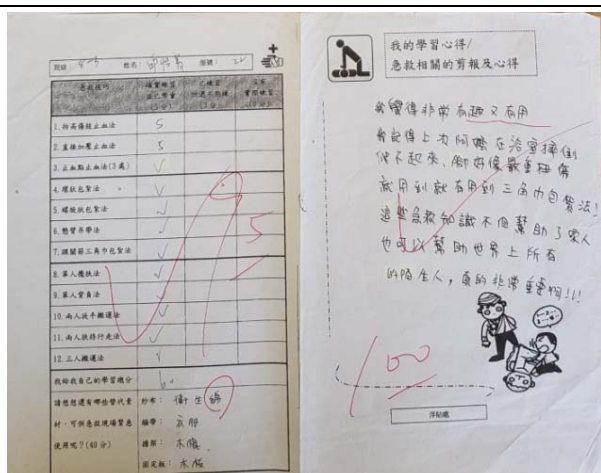 班級
姓名
座號 22
急救技術
1. 抬高傷肢止血法 5
2. 直接加壓止血法 5
3. 止血點止血法(3處) ✓
4. 環狀包紮法 ✓
5. 螺旋狀包紮法 ✓
6. 懸臂吊帶法 ✓
7. 膝關節三角巾包紮法 ✓
8. 單人攙扶法 ✓
9. 單人背負法 ✓
10. 兩人徒手搬運法
11. 兩人扶持行走法 ✓
12. 三人搬運法 ✓
5
我給我自己的學習總分 60
請想想還有哪些替代素
材,可供急救現場緊急
使用呢?(40分)
紗布: 衛生
繃帶: 衣服
固定板: 木板
我的學習心得/
急救相關的剪報及心得
我覺得非常有趣又有用
我記得上次阿嬤在浴室摔倒
爬不起來,腳好像嚴重扭傷
就用到就有用到三角巾包紮法!
這些急救知識不但幫助了家人
也可以幫助世界上所有
的陌生人,真的非常重要啊!!!
100
浮貼處